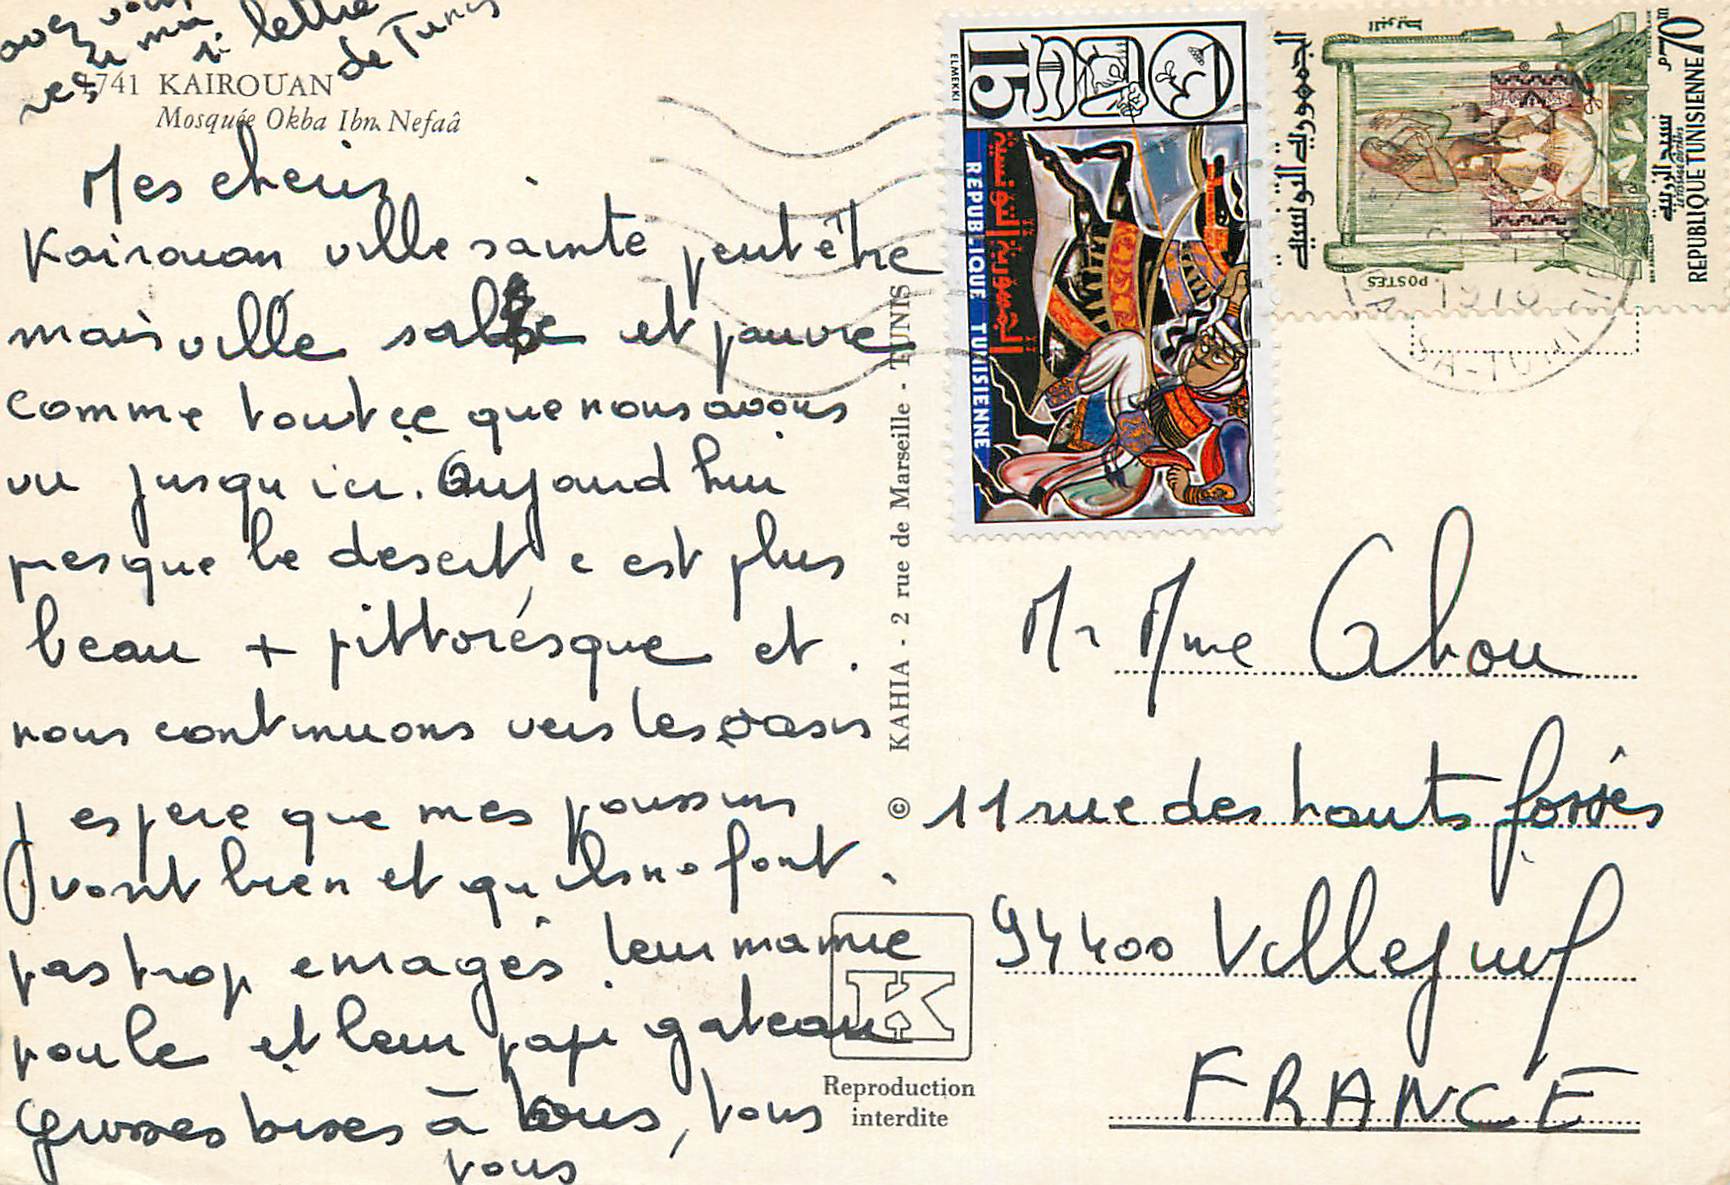 avez vous
reçu ma
1ʳ lettre
de Tunis
4741 KAIROUAN
Mosquée Okba Ibn Nefaâ
Mes cheris
Kairouan ville sainte peut être
mais ville sale et pauvre
comme toutce que nous avons
vu jusqu ici. Aujourd hui
presque le desert, c est plus
beau + pittorésque et.
nous continuons vers les oasis
J espere que mes poussins
vont bien et qu ils ne font.
pas trop enragés leur mamie
poule et leur papi gateau
Grosses bises à tous, tous
tous
© KAHIA - 2 rue de Marseille - TUNIS
Reproduction
interdite
K
15
ELMEKKI
REPUBLIQUE TUNISIENNE
الجمهورية التونسية
البريد
70 م
70m
REPUBLIQUE TUNISIENNE
POSTES
Mr Mme Cahou
11 rue des hauts fossés
94400 Villejuif
FRANCE